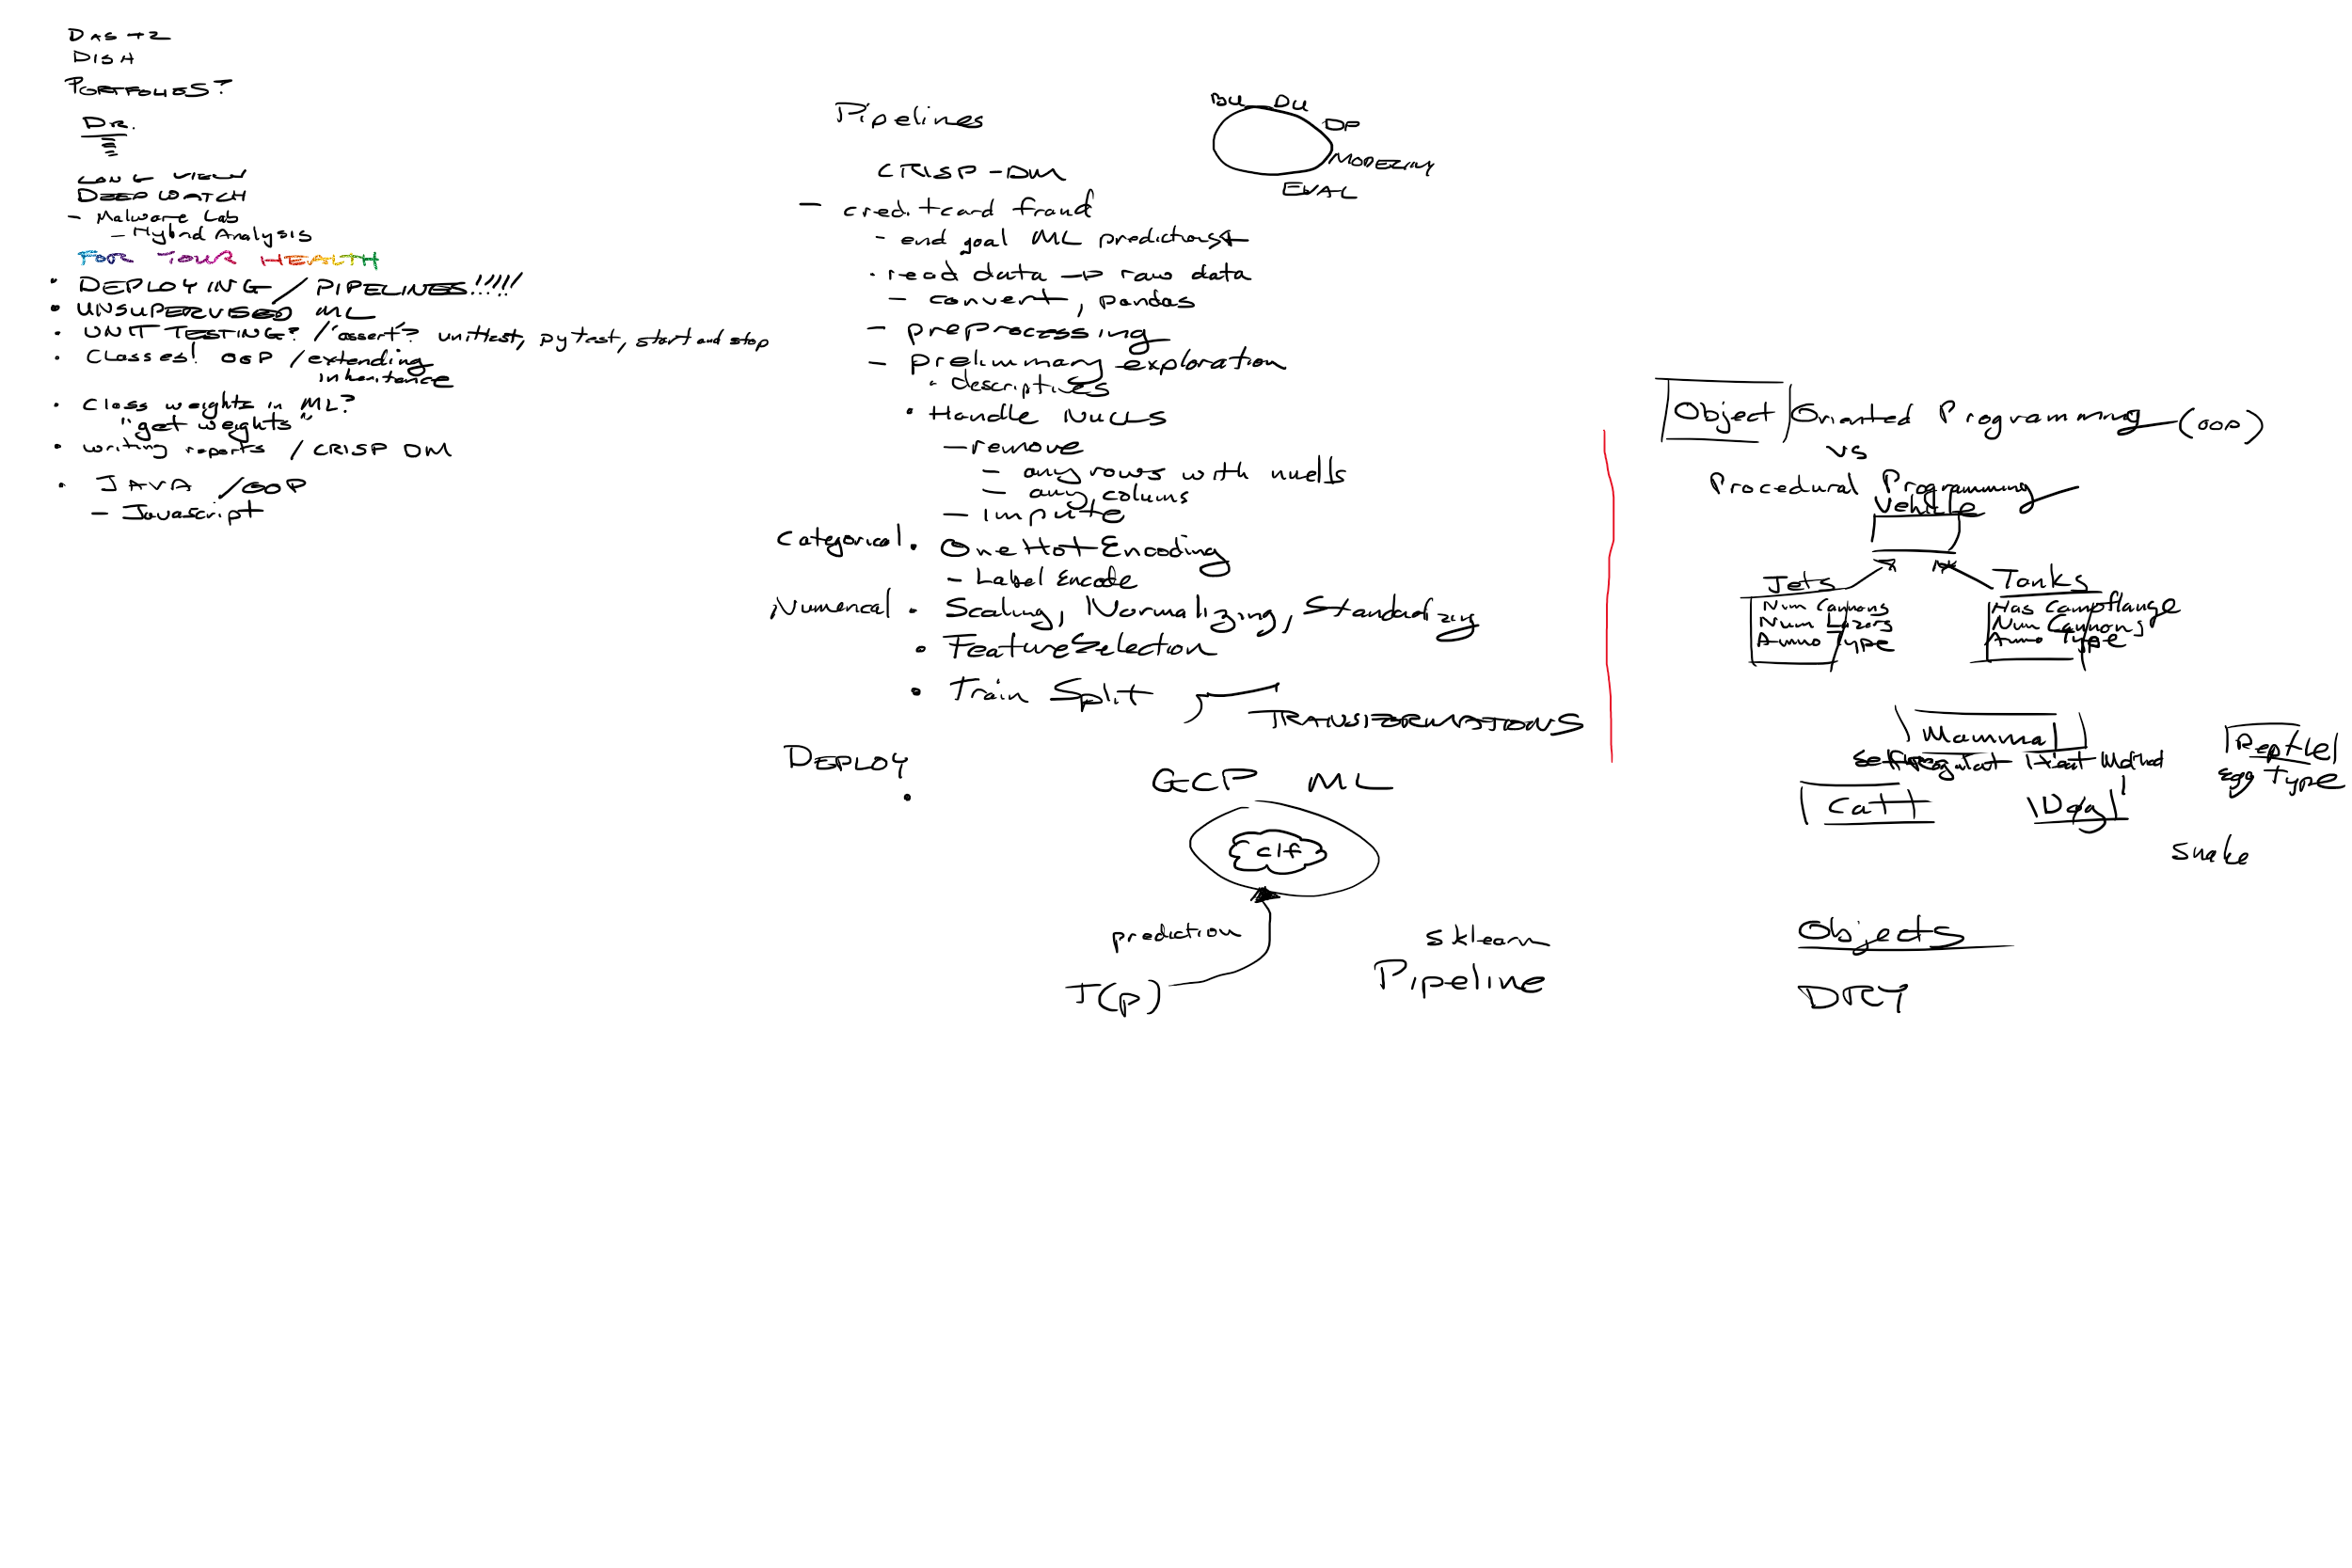 DAS +2
DISH
PORTFOLIOS?
DR.
LONG VIEW
DEEPWATCH
- Malware Lab
- Hybrid Analysis
FOR YOUR HEALTH
• DEPLOYING / PIPELINES!!!!!
• UNSUPERVISED ML
• UNIT TESTING? / "assert"? unittest, pytest, start and stop
• Classes! OOP / extending
inheritance
• Class weights in ML?
"get weights"
• writing reports / CRISP DM
• JAVA / OOP
- Javascript
Pipelines
BU DU
DP
MODELING
EVAL
CRISP-DM
- creditcard fraud
- end goal ML predictions
• read data -> raw data
- convert, pandas
- preprocessing
- prelimmary exploration
• descriptives
• Handle Nulls
- remove
- any rows with nuells
- any colums
- impute
Categorical • OneHotEncoding
- Label Encode
Numerical • Scaling, Normalizing, Standadizing
• Feature Selection
• Train Split
TRANSFORMATIONS
DEPLOY
•
GCP ML
clf
prediction
T(p)
sklearn
Pipeline
Object Oriented Programming (OOP)
vs
Procedural Programming
Vehicle
Jets
Num Cannons
Num Lazors
Ammo Type
Tanks
Has Campflauge
Num Cannons
Ammo Type
Mammal
Reptile
Egg Type
Catt
Dog
Snake
Objects
DRY